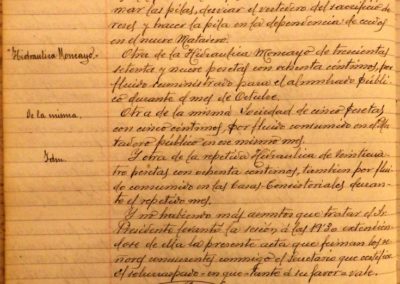 mar las pilas, desviar el vertedero del sacrificio de
reses y hacer la pila en la dependencia de cerdos
en el nuevo Matadero.
"Hidraulica Moncayo"
Otra de la Hidraulica Moncayo de trescientas
setenta y nueve pesetas con ochenta centimos, por
fluido suministrado para el alumbrado públi-
co durante el mes de Octubre.
De la misma.
Otra de la misma Sociedad de cinco pesetas
con cinco centimos, por fluido consumido en el la
vadero público en ese mismo mes.
Idm.
Y otra de la repetida Hidraulica de veinticua-
tro pesetas con ochenta centimos, tambien por flui
do consumido en las Casas Consistoriales duran-
te el repetido mes.
Y no habiendo más asuntos que tratar el Sr.
Presidente levantó la sesión á las 19'30 extendien-
dose de ella la presente acta que firman los se-
ñores concurrentes conmigo el Secretario que certifico
el sobreraspado = en que = tanto á su favor = vale.